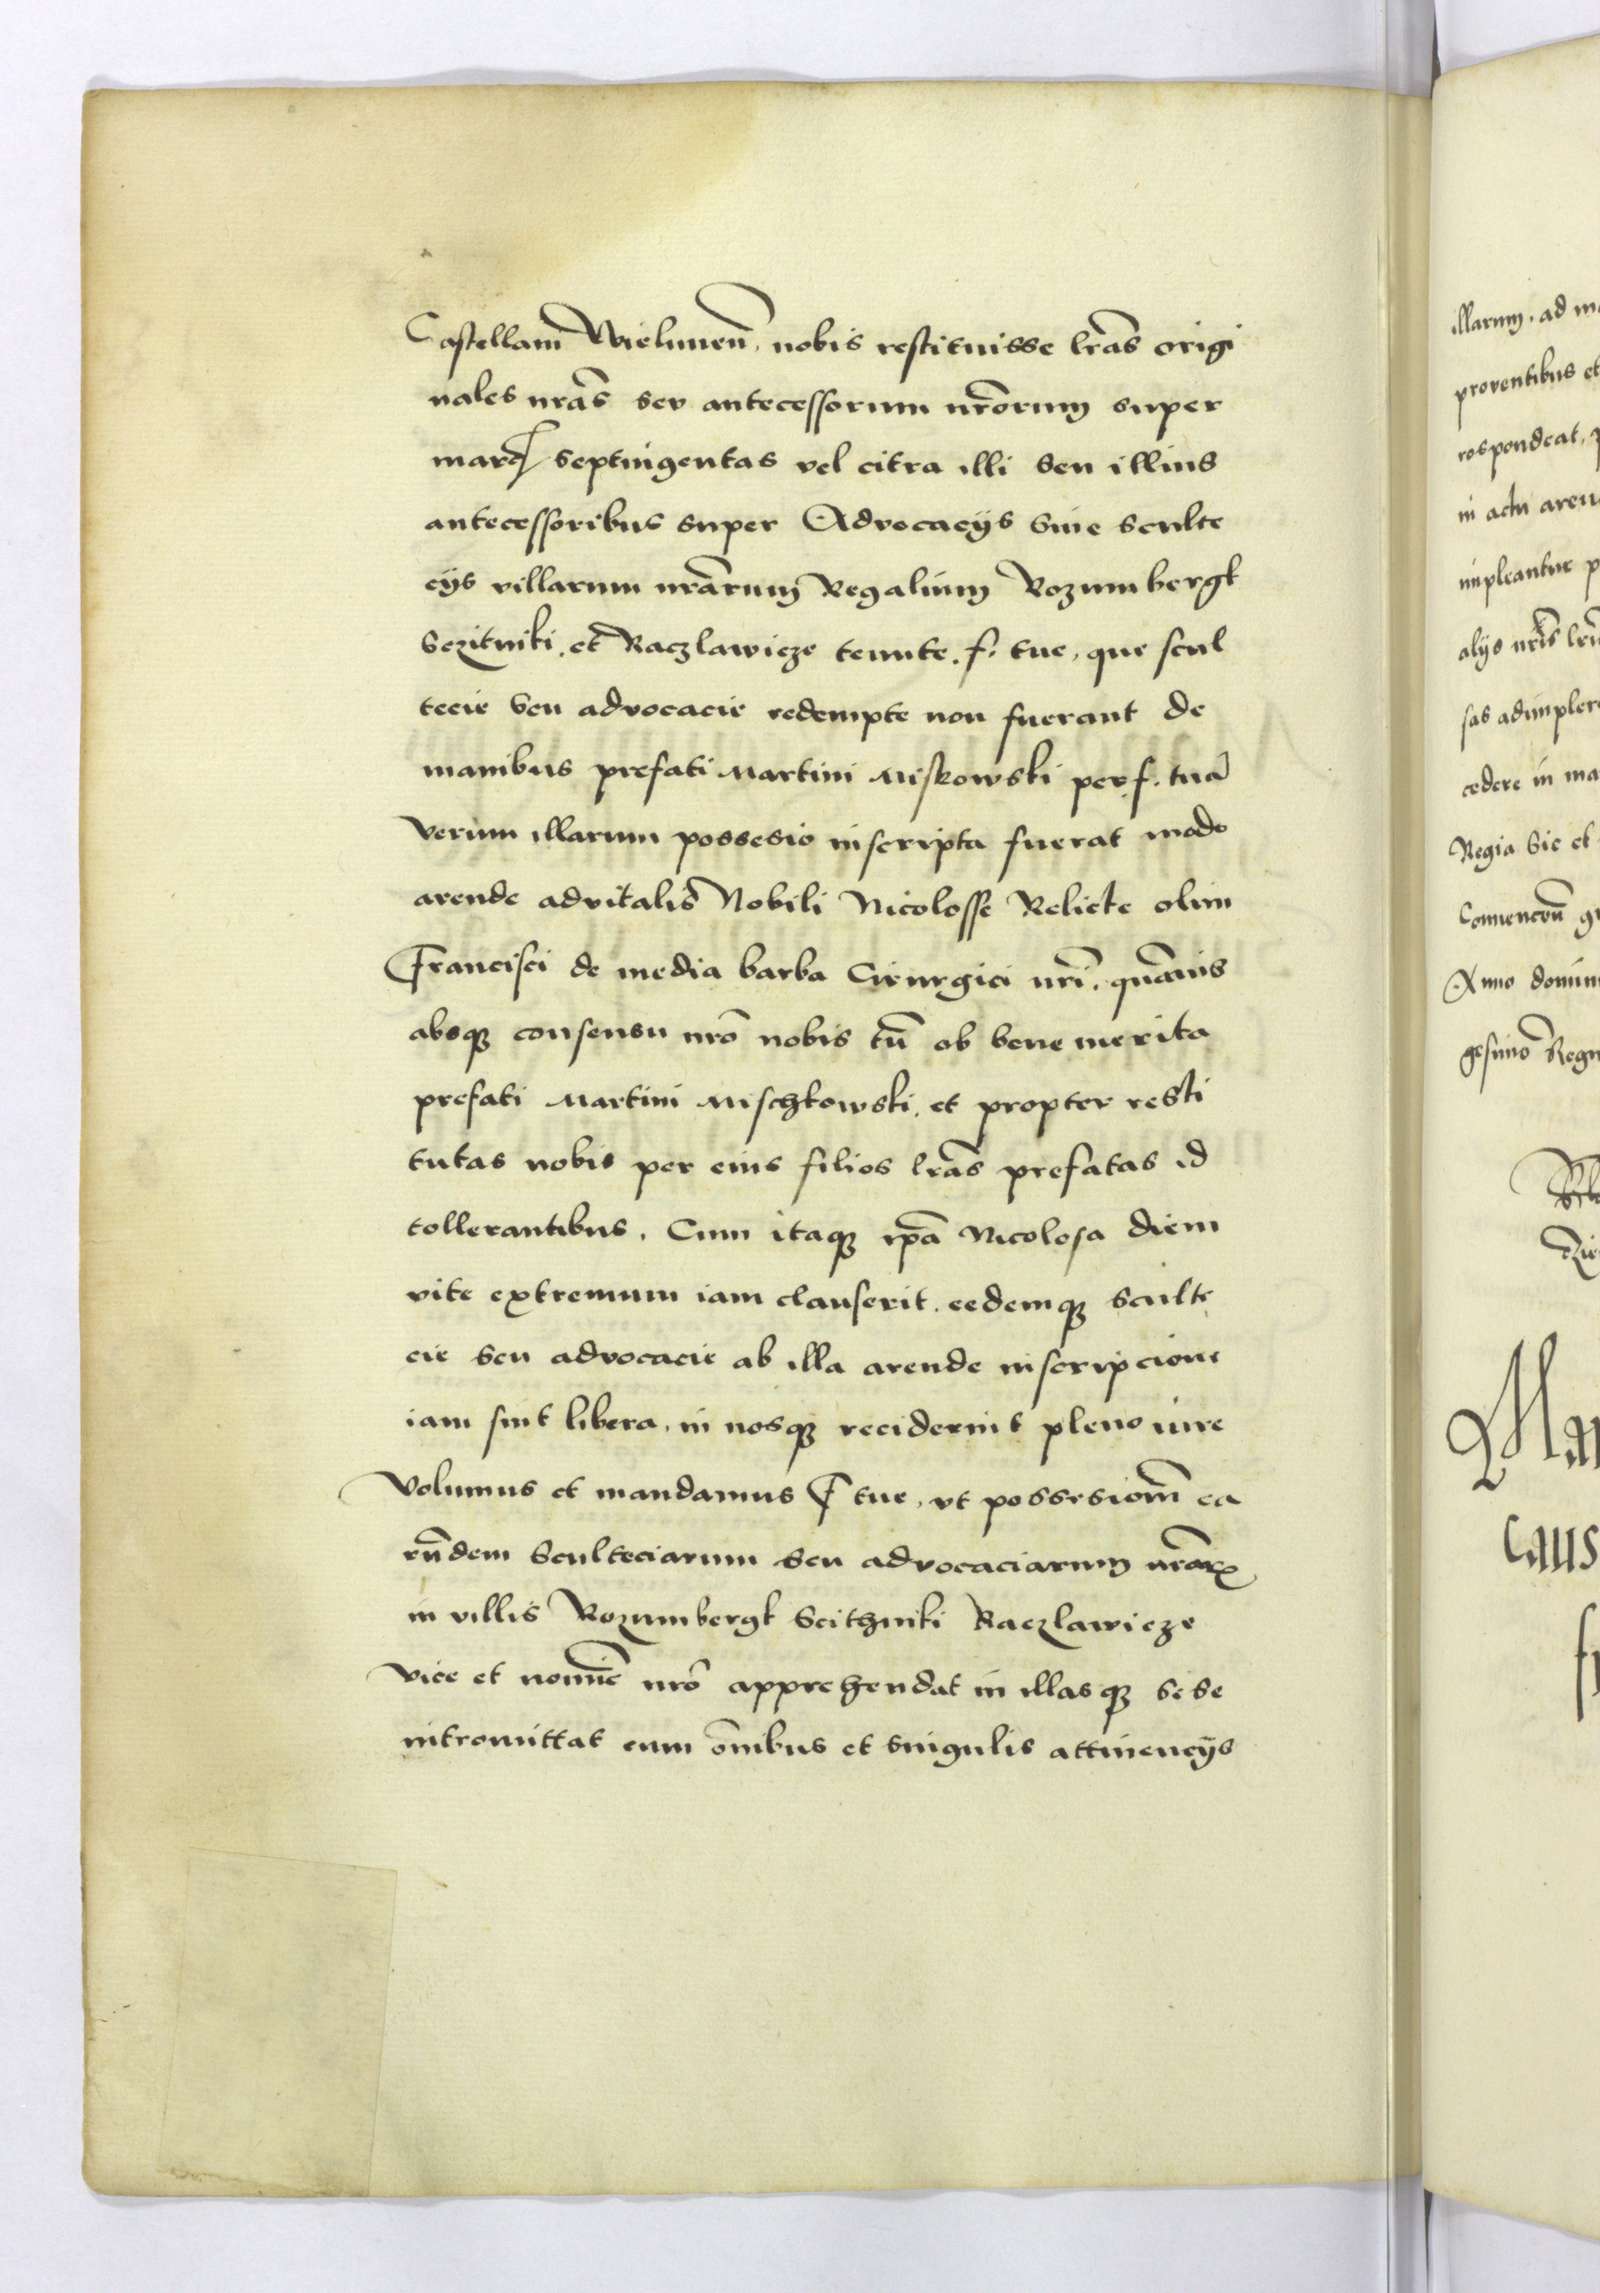 Castellani Wielunen̄, nobis restituisse lrās origi
nales nrās seu antecessorum nrōrum super
marcis septingentas vel citra illi seu illius
antecessoribus super Advocacÿs sive sculte
cÿs villarum nrārum Regalium Rozumbergk
Sczitniki, et Raczlawicze tenute. f. tue, que scul
tecie seu advocacie redempte non fuerant de
manibus prefati Martini Miskowski per f. tuā
verum illarum possesio inscripta fuerat modo
arende advitalis Nobili Nicolosse Relicte olim
Francisci de media barba Cirurgici nrī, quāvis
absqꝫ consensu nrō nobis tn̄ ob bene merita
prefati Martini Mischkowski, et propter resti
tutas nobis per eius filios lrās prefatas id
tollerantibus. Cum itaqꝫ ipā Nicolosa diem
vite extremum iam clauserit. eedemqꝫ sculte
cie seu advocacie ab illa arende inscripcione
iam sint libera, in nosqꝫ reciderint pleno iure
Volumus et mandamus F tue, vt possesionē ea
rūdem Sculteciarum seu advocaciarum nrārꝝ
in villis Rozumbergk Scithniki Raczlawicze
vice et nomiē nrō apprehendat in illasqꝫ sese
intromittat cum ōnibus et singulis attinencÿs
illarum. ad
proventibus et
respondeat,
in actu
impleantur
alÿs nrīs
sas
cedere in
Regia sic et
Anno
gesimo